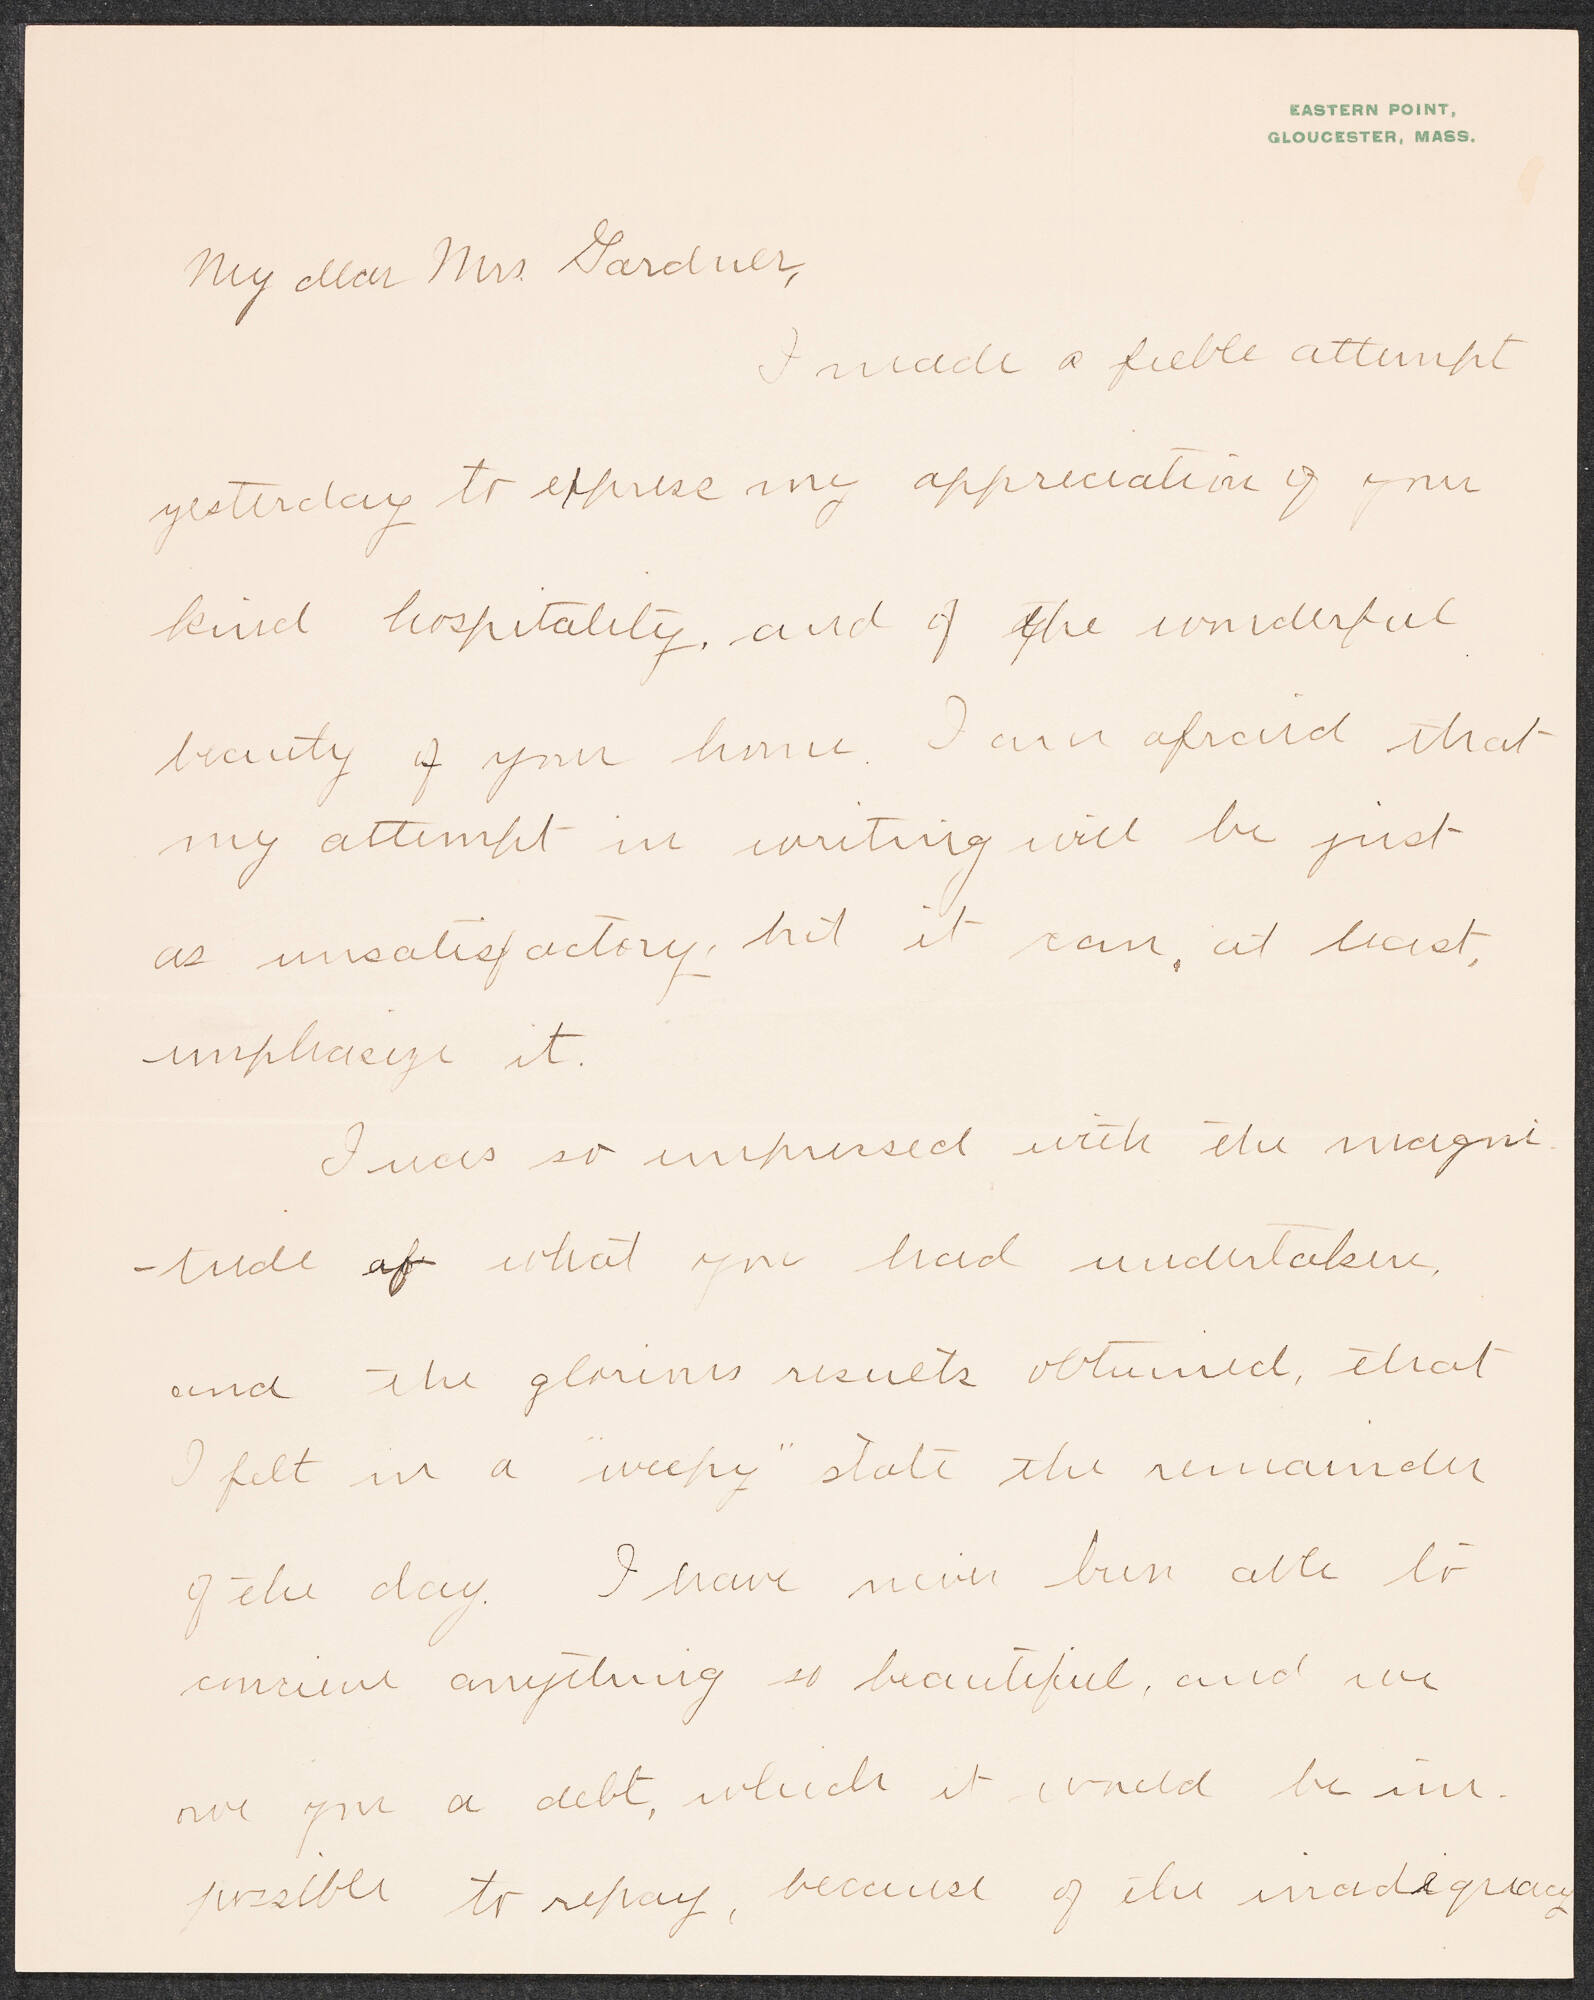 EASTERN POINT,
GLOUCESTER, MASS.
My dear Mrs. Gardner,
I made a feeble attempt
yesterday to express my appreciation of your
kind hospitality, and of the wonderful
beauty of your home. I am afraid that
my attempt in writing will be just
as unsatisfactory, but it can, at least,
emphasize it.
I was so impressed with the magni-
-tude of what you had undertaken,
and the glorious results obtained, that
I felt in a "weepy" state the remainder
of the day. I have never been able to
conceive anything so beautiful, and we
owe you a debt, which it would be im-
possible to repay, because of the inadequacy